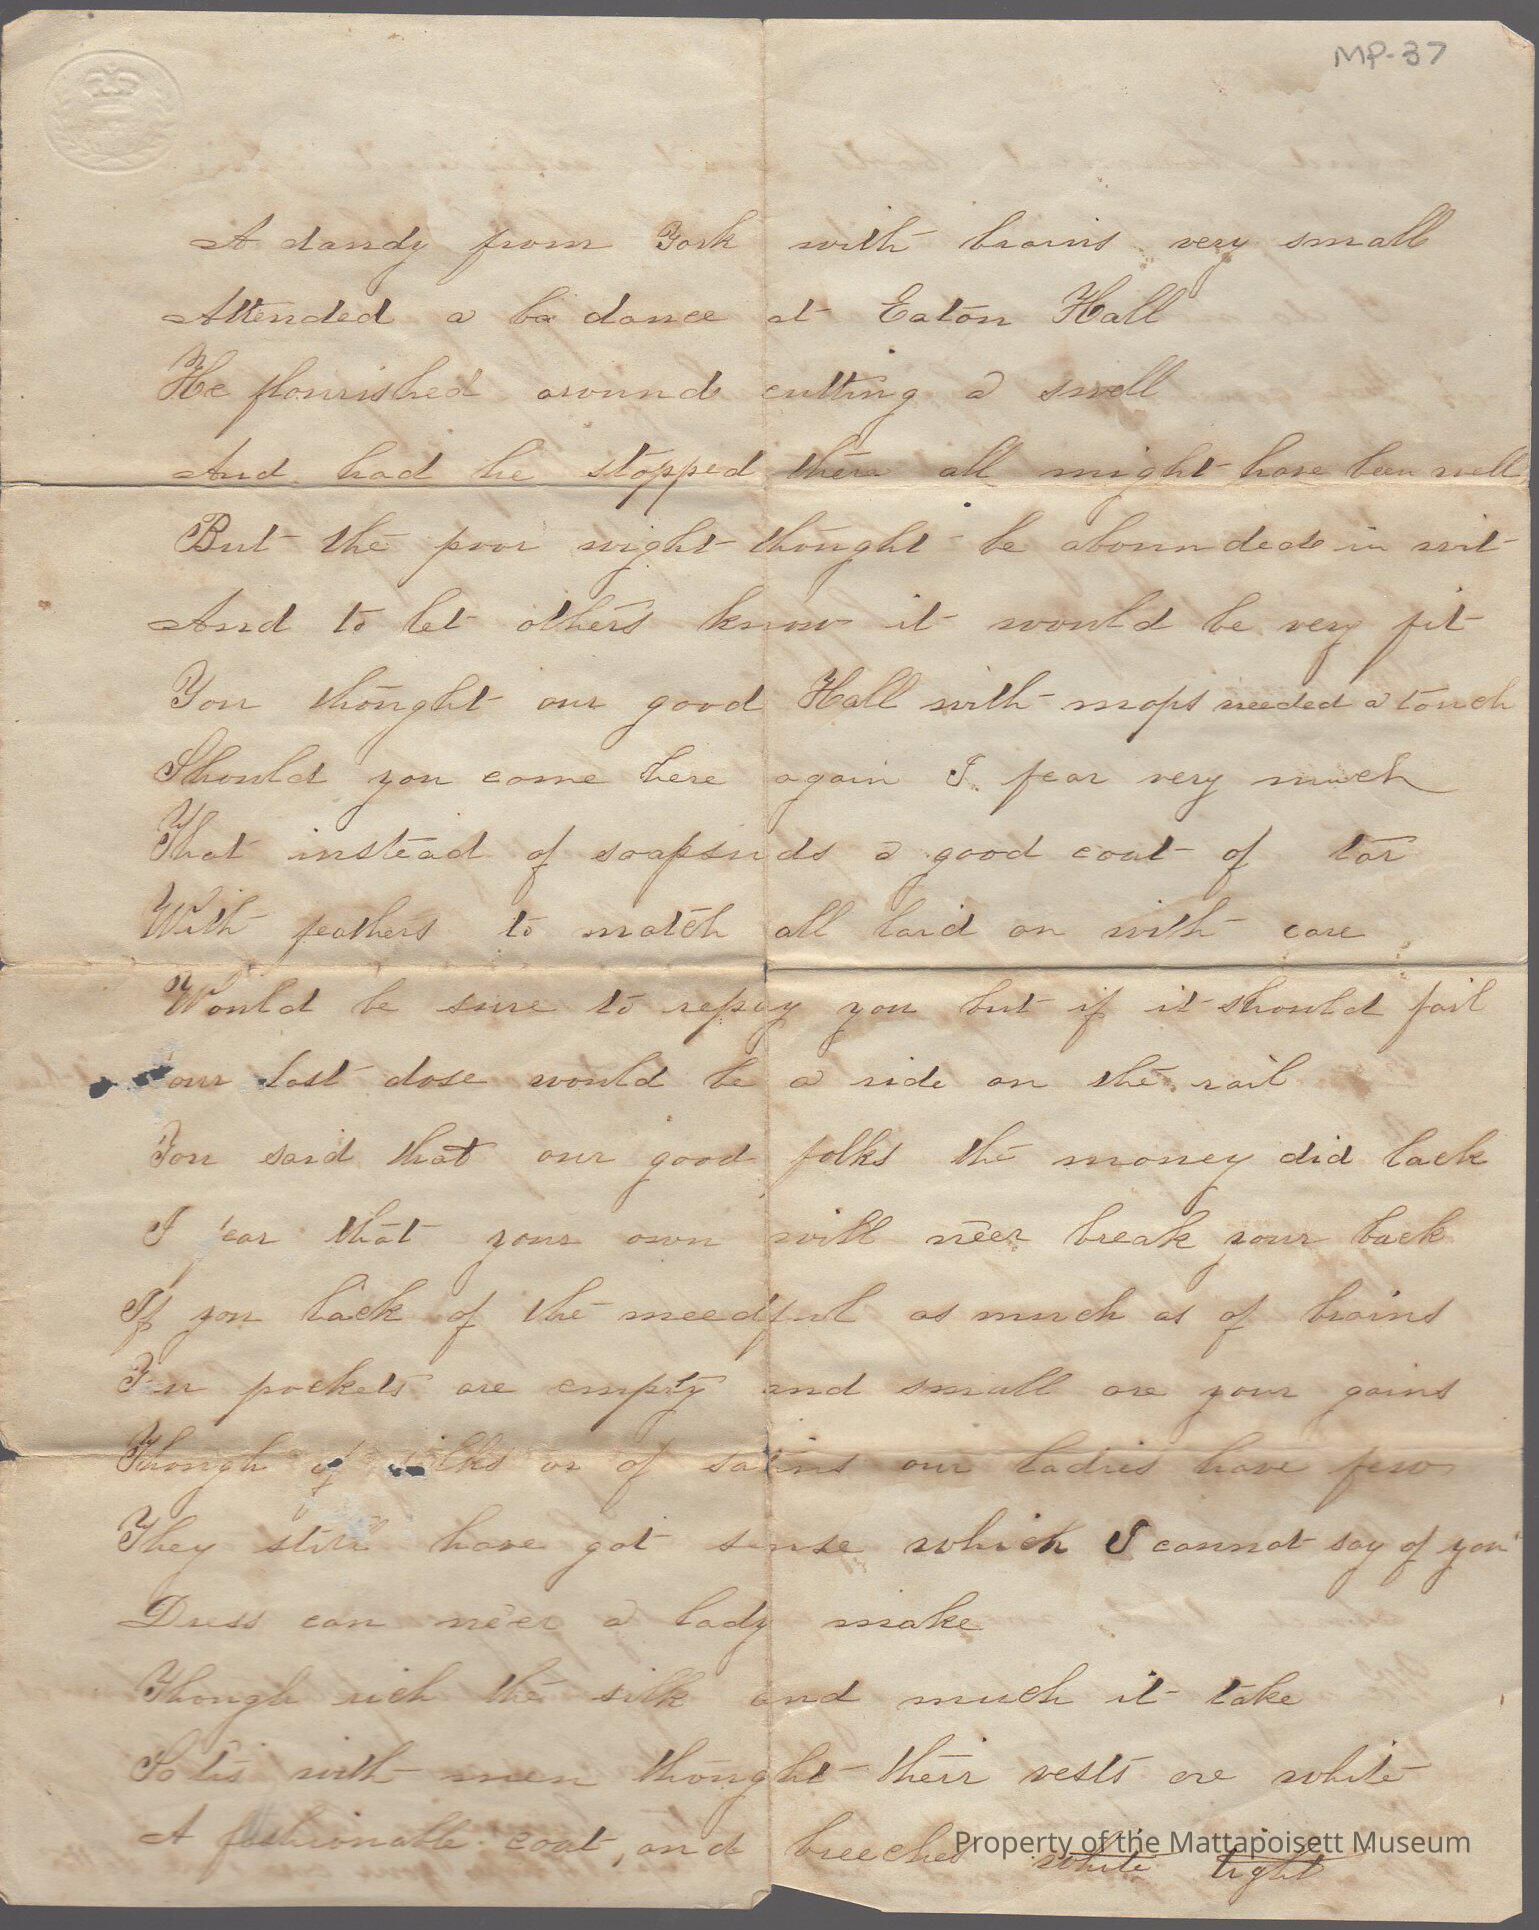 MP-37
A dandy from York with brains very small
Attended a ba dance at Eaton Hall
He flourished around cutting a swell
And had he stopped there all might have been well
But the poor wight thought he abounded in wit
And to let others know it would be very fit
You thought our good Hall with mops needed a touch
Should you come here again I fear very much
That instead of soapsuds a good coat of tar
With feathers to match all laid on with care
Would be sure to repay you but if it should fail
our last dose would be a ride on the rail
You said that our good folks the money did lack
I ear that your own will neer break your back
If you lack of the needful as much as of brains
pockets are empty and small are your gains
Though of silks or of satins our ladies have few
They still have got sense which I cannot say of you
Dress can ne'er a lady make
Though rich the silk and much it take
So tis with men thought their vests are white
A fashionable coat, and breeches white tight
Property of the Mattapoisett Museum